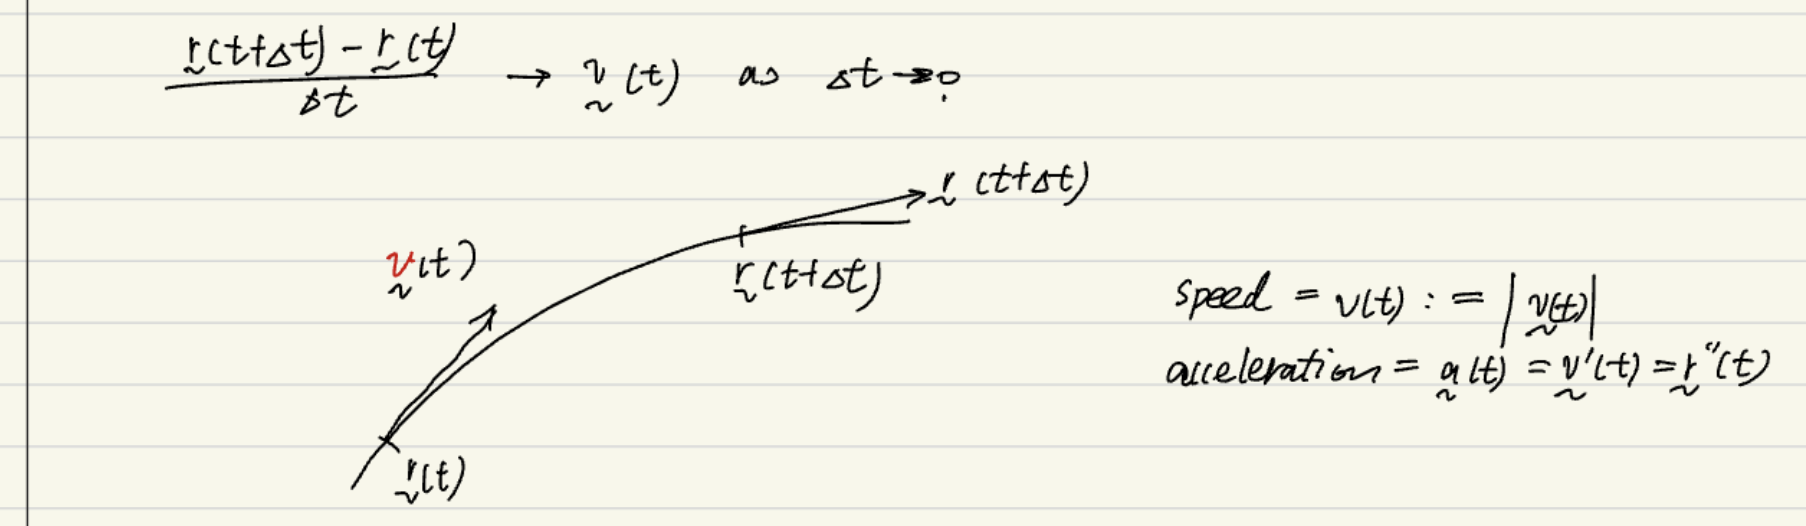 r̰(t+Δt) - r̰(t)
Δt
→ v̰(t) as Δt→0.
r̰(t+Δt)
v̰(t)
r̰(t+Δt)
speed = v(t) := |v̰(t)|
acceleration = a̰(t) = v̰'(t) = r̰''(t)
r̰(t)